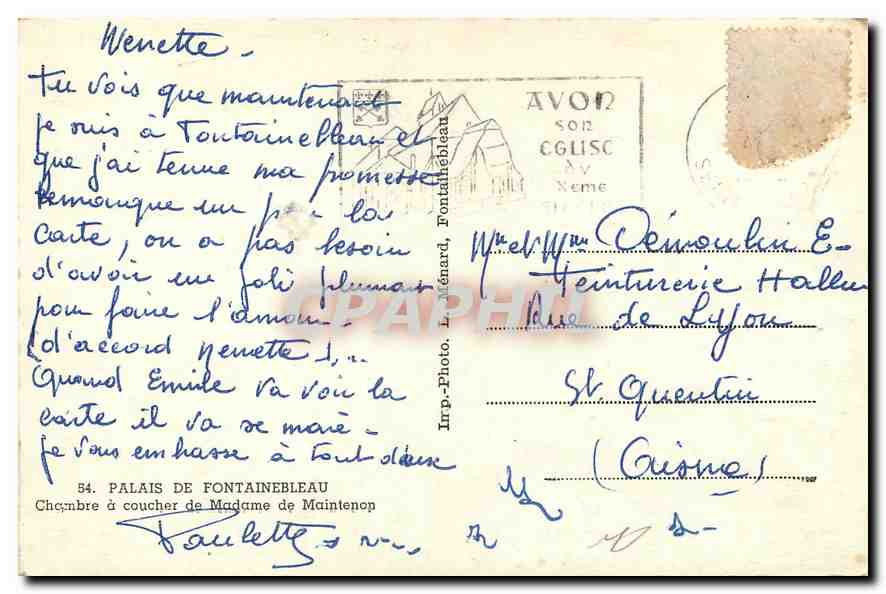 Nenette -
Tu vois que maintenant
je suis à Fontainebleau et
que j'ai tenue ma promesse
remarque un peu la
carte, on a pas besoin
d'avoir un joli plumar
pour faire l'amour -
d'accord Nenette !...
Quand Emile va voir la
carte il va se marè -
je vous embrasse à tout deux
54. PALAIS DE FONTAINEBLEAU
Chambre à coucher de Madame de Maintenon
Paulette
Imp.-Photo. L. Ménard, Fontainebleau
AVON
SON
EGLISE
DU
Xeme
CPAPHIL
Mr et Mme Démoulin E-
Teinturerie Hallu
Rue de Lyon
St Quentin
(Aisne)